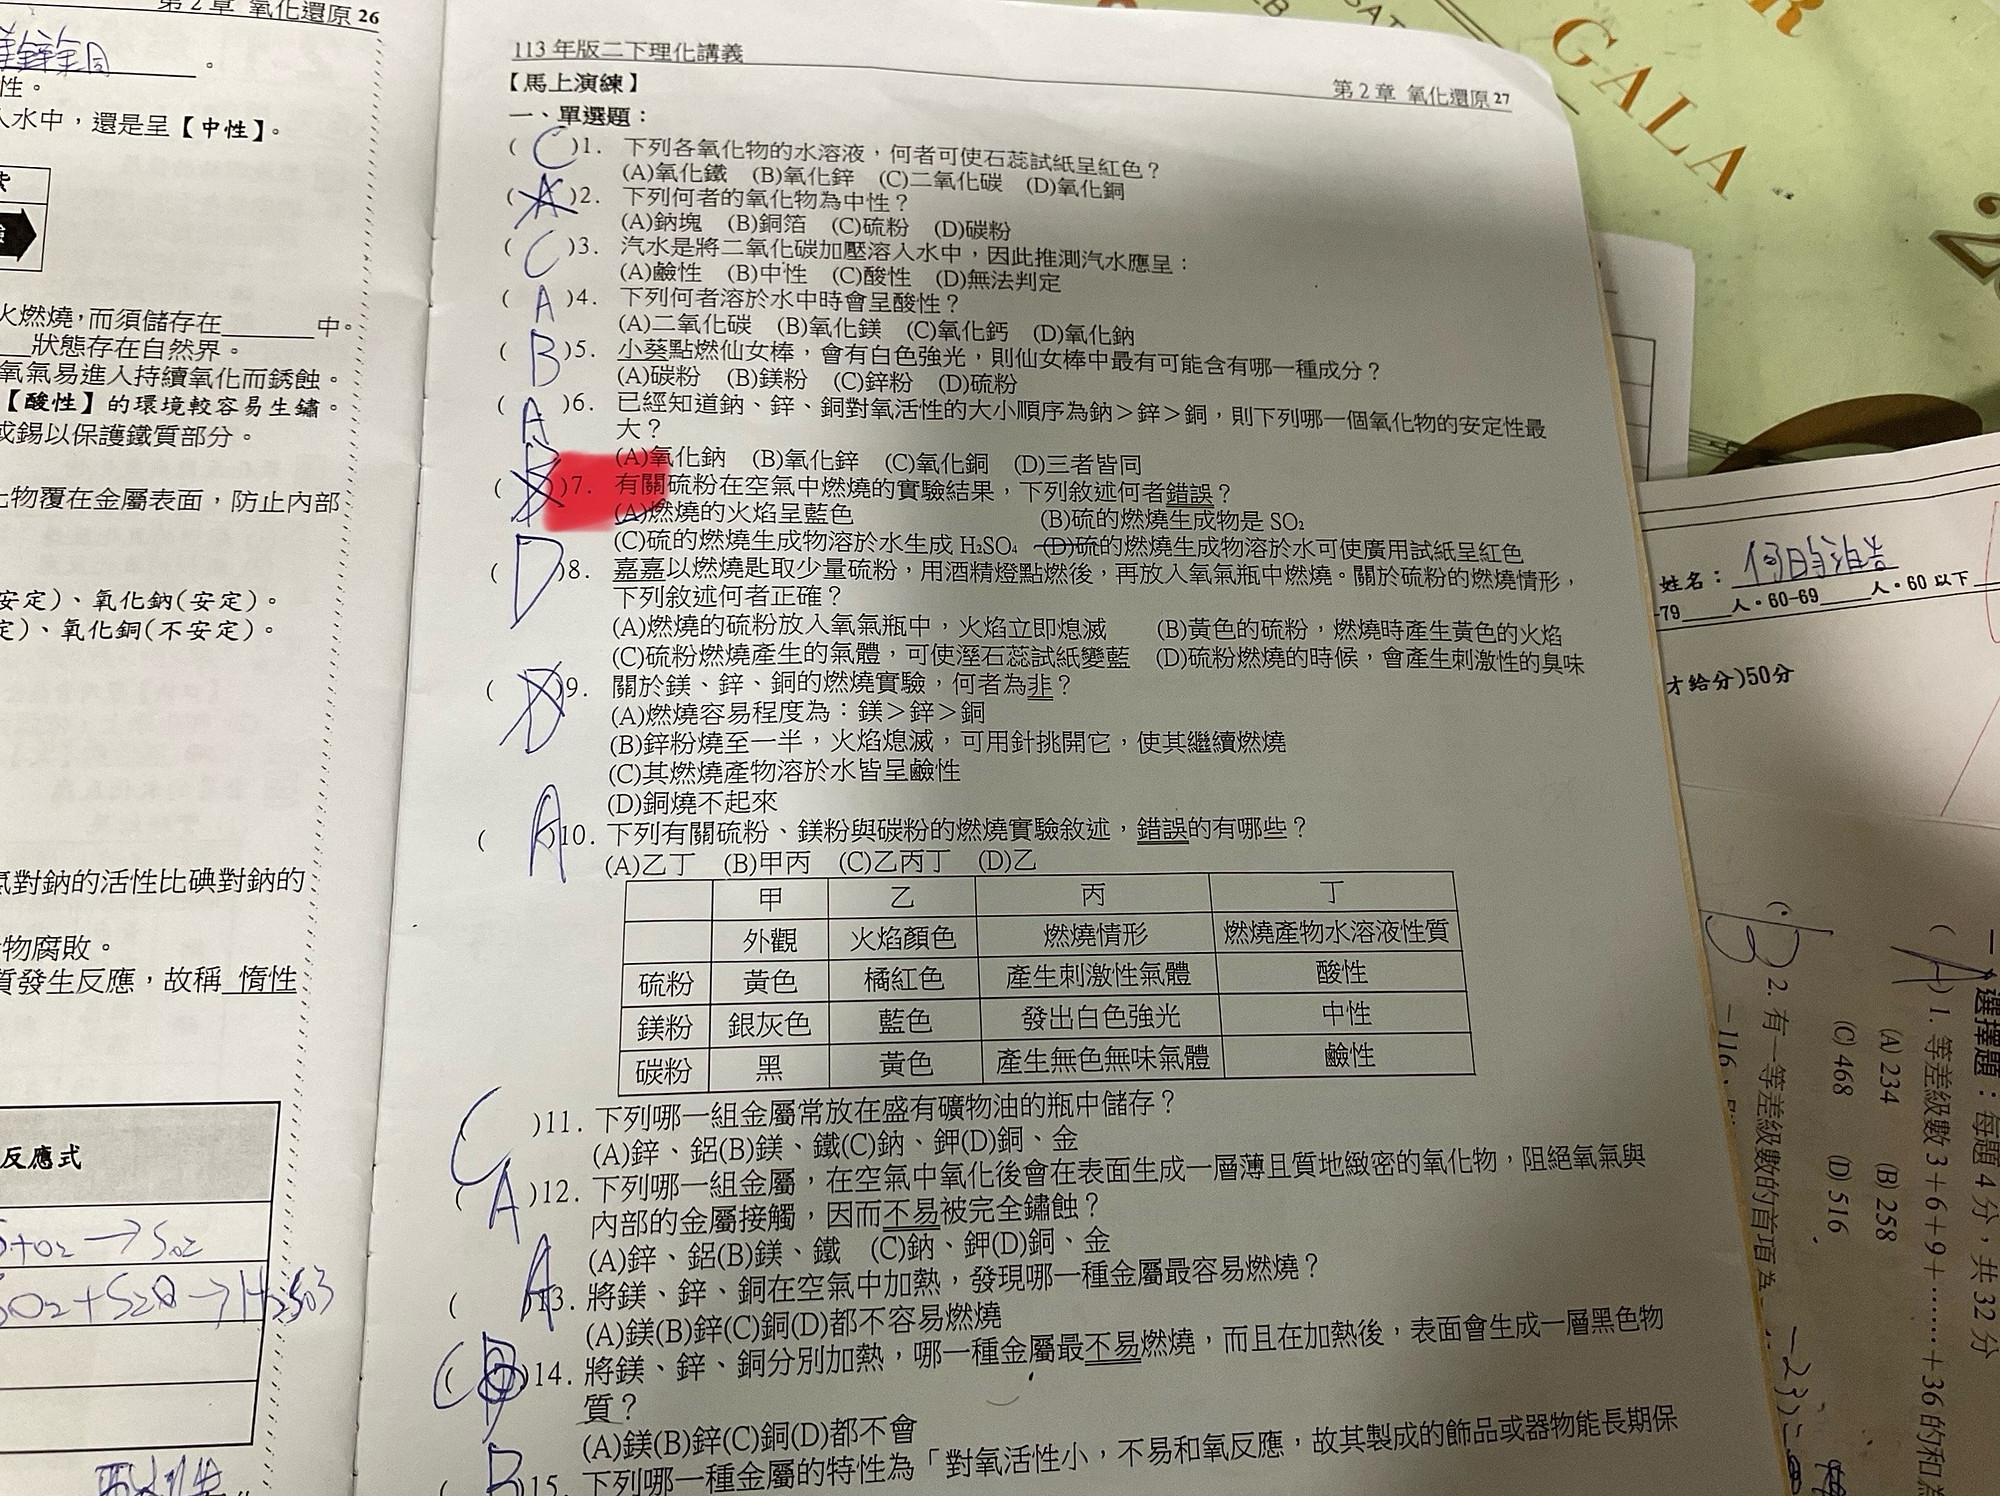 第2章 氧化還原 26
鋅銅
。
性。
入水中，還是呈【中性】。
火燃燒，而須儲存在 中。
狀態存在自然界。
氧氣易進入持續氧化而銹蝕。
【酸性】的環境較容易生鏽。
或錫以保護鐵質部分。
物覆在金屬表面，防止內部
安定)、氧化鈉(安定)。
定)、氧化銅(不安定)。
對鈉的活性比碘對鈉的
物腐敗。
質發生反應，故稱 惰性
反應式
113 年版二下理化講義
第2章 氧化還原 27
【馬上演練】
一、單選題：
( C )1. 下列各氧化物的水溶液，何者可使石蕊試紙呈紅色？
(A)氧化鐵 (B)氧化鋅 (C)二氧化碳 (D)氧化銅
( A )2. 下列何者的氧化物為中性？
(A)鈉塊 (B)銅箔 (C)硫粉 (D)碳粉
( C )3. 汽水是將二氧化碳加壓溶入水中，因此推測汽水應呈：
(A)鹼性 (B)中性 (C)酸性 (D)無法判定
( A )4. 下列何者溶於水中時會呈酸性？
(A)二氧化碳 (B)氧化鎂 (C)氧化鈣 (D)氧化鈉
( B )5. 小葵點燃仙女棒，會有白色強光，則仙女棒中最有可能含有哪一種成分？
(A)碳粉 (B)鎂粉 (C)鋅粉 (D)硫粉
( A )6. 已經知道鈉、鋅、銅對氧活性的大小順序為鈉＞鋅＞銅，則下列哪一個氧化物的安定性最
大？
(A)氧化鈉 (B)氧化鋅 (C)氧化銅 (D)三者皆同
( )7. 有關硫粉在空氣中燃燒的實驗結果，下列敘述何者錯誤？
(A)燃燒的火焰呈藍色 (B)硫的燃燒生成物是 SO₂
(C)硫的燃燒生成物溶於水生成 H₂SO₄ (D)硫的燃燒生成物溶於水可使廣用試紙呈紅色
( D )8. 嘉嘉以燃燒匙取少量硫粉，用酒精燈點燃後，再放入氧氣瓶中燃燒。關於硫粉的燃燒情形，
下列敘述何者正確？
(A)燃燒的硫粉放入氧氣瓶中，火焰立即熄滅 (B)黃色的硫粉，燃燒時產生黃色的火焰
(C)硫粉燃燒產生的氣體，可使溼石蕊試紙變藍 (D)硫粉燃燒的時候，會產生刺激性的臭味
( D )9. 關於鎂、鋅、銅的燃燒實驗，何者為非？
(A)燃燒容易程度為：鎂＞鋅＞銅
(B)鋅粉燒至一半，火焰熄滅，可用針挑開它，使其繼續燃燒
(C)其燃燒產物溶於水皆呈鹼性
(D)銅燒不起來
( A )10. 下列有關硫粉、鎂粉與碳粉的燃燒實驗敘述，錯誤的有哪些？
(A)乙丁 (B)甲丙 (C)乙丙丁 (D)乙
甲 乙 丙 丁
外觀 火焰顏色 燃燒情形 燃燒產物水溶液性質
硫粉 黃色 橘紅色 產生刺激性氣體 酸性
鎂粉 銀灰色 藍色 發出白色強光 中性
碳粉 黑 黃色 產生無色無味氣體 鹼性
C )11. 下列哪一組金屬常放在盛有礦物油的瓶中儲存？
(A)鋅、鋁(B)鎂、鐵(C)鈉、鉀(D)銅、金
( A )12. 下列哪一組金屬，在空氣中氧化後會在表面生成一層薄且質地緻密的氧化物，阻絕氧氣與
內部的金屬接觸，因而不易被完全鏽蝕？
(A)鋅、鋁(B)鎂、鐵 (C)鈉、鉀(D)銅、金
( A )13. 將鎂、鋅、銅在空氣中加熱，發現哪一種金屬最容易燃燒？
(A)鎂(B)鋅(C)銅(D)都不容易燃燒
( )14. 將鎂、鋅、銅分別加熱，哪一種金屬最不易燃燒，而且在加熱後，表面會生成一層黑色物
質？
(A)鎂(B)鋅(C)銅(D)都不會
( B )15. 下列哪一種金屬的特性為「對氧活性小，不易和氧反應，故其製成的飾品或器物能長期保
GALA
姓名：
-79 人。60-69 人。60 以下
才給分)50分
一、選擇題：每題 4 分，共 32 分
( A ) 1. 等差級數 3＋6＋9＋……＋36 的和為
(A) 234 (B) 258
(C) 468 (D) 516
( B ) 2. 有一等差級數的首項為